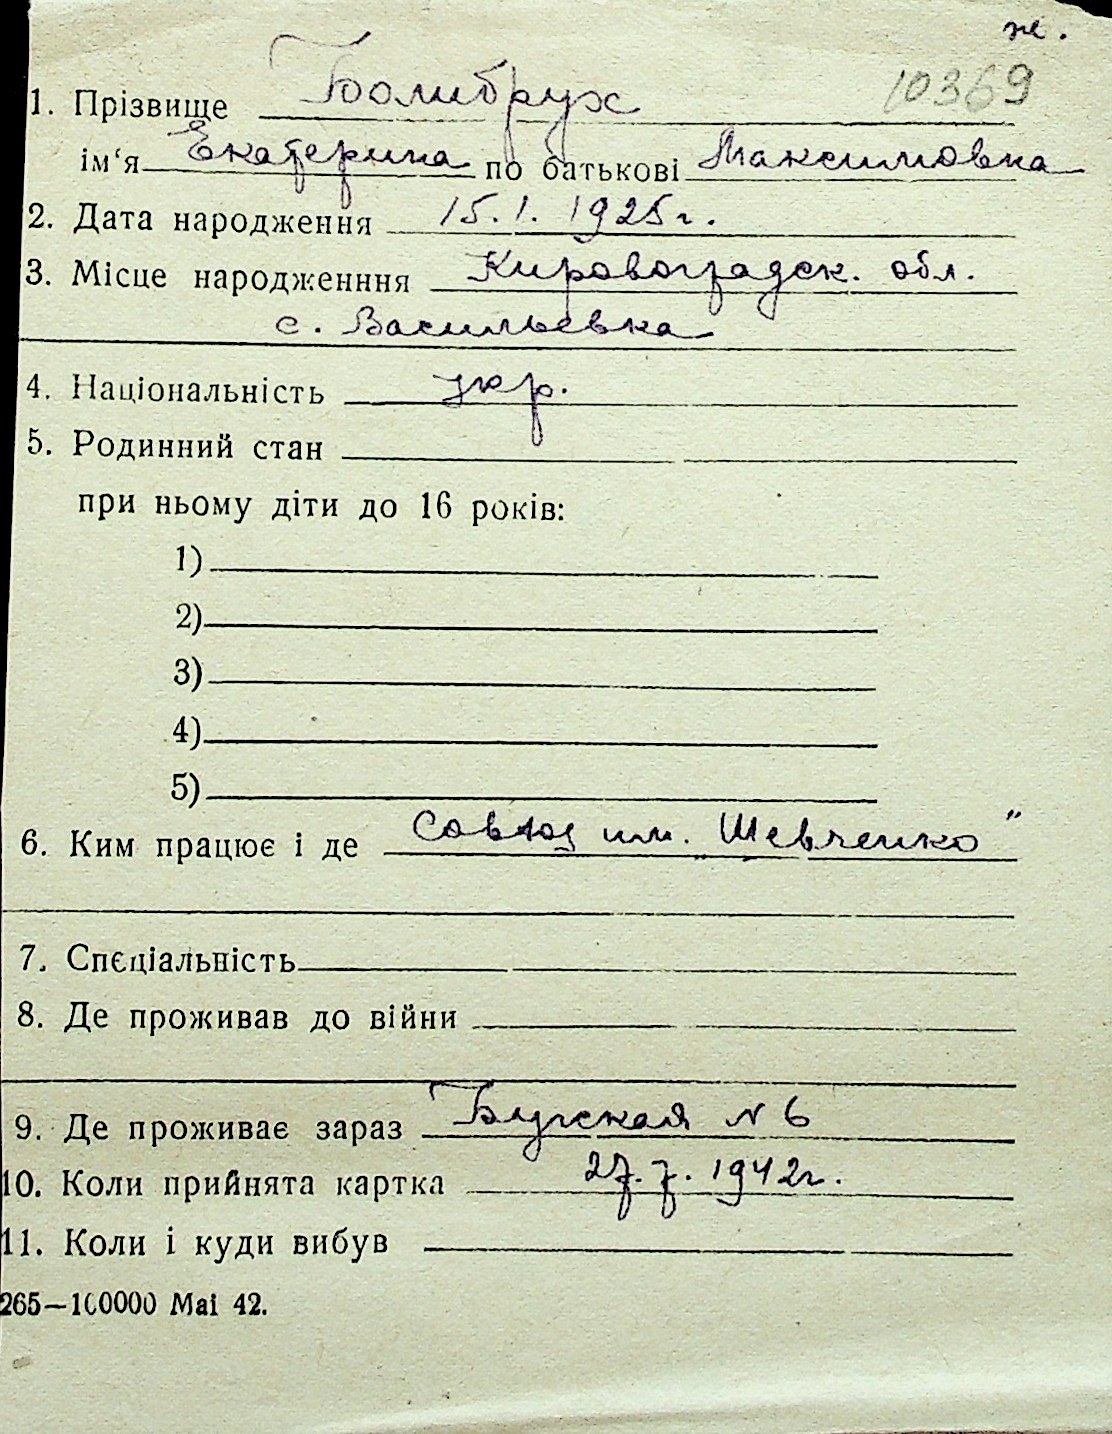 ж.
10369
1. Прізвище Болибрух
ім‘я Екатерина по батькові Максимовна
2. Дата народження 15.1.1925г.
3. Місце народженння Кировоградск. обл.
с. Васильевка
4. Національність укр.
5. Родинний стан
при ньому діти до 16 років:
1)
2)
3)
4)
5)
6. Ким працює і де им. „Шевченко"
7. Спєціальність
8. Де проживав до війни
9. Де проживає зараз Бугская N 6
10. Коли прийнята картка 27.7.1942г.
11. Коли і куди вибув
265—100000 Mai 42.